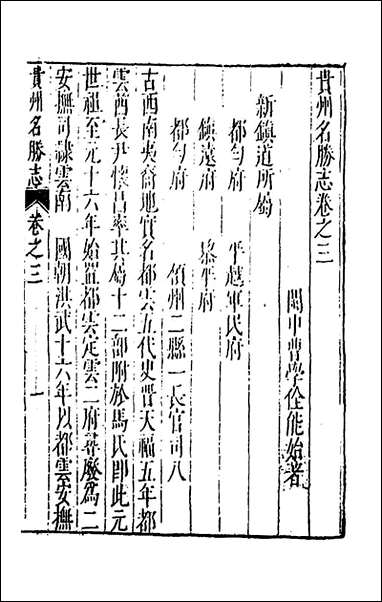 貴州名勝志卷之三
閩中曹學佺能始著
新鎮道所屬
都勻府　平越軍民府
鎮遠府　黎平府
都勻府　領州二縣一長官司八
古西南夷裔地實名都雲五代史晉天福五年都
雲酋長尹懷昌率其屬十二部附於馬氏即此元
世祖至元十六年始置都雲定雲二府尋廢為二
安撫司隸雲南　國朝洪武十六年以都雲安撫
貴州名勝志　卷之三　一